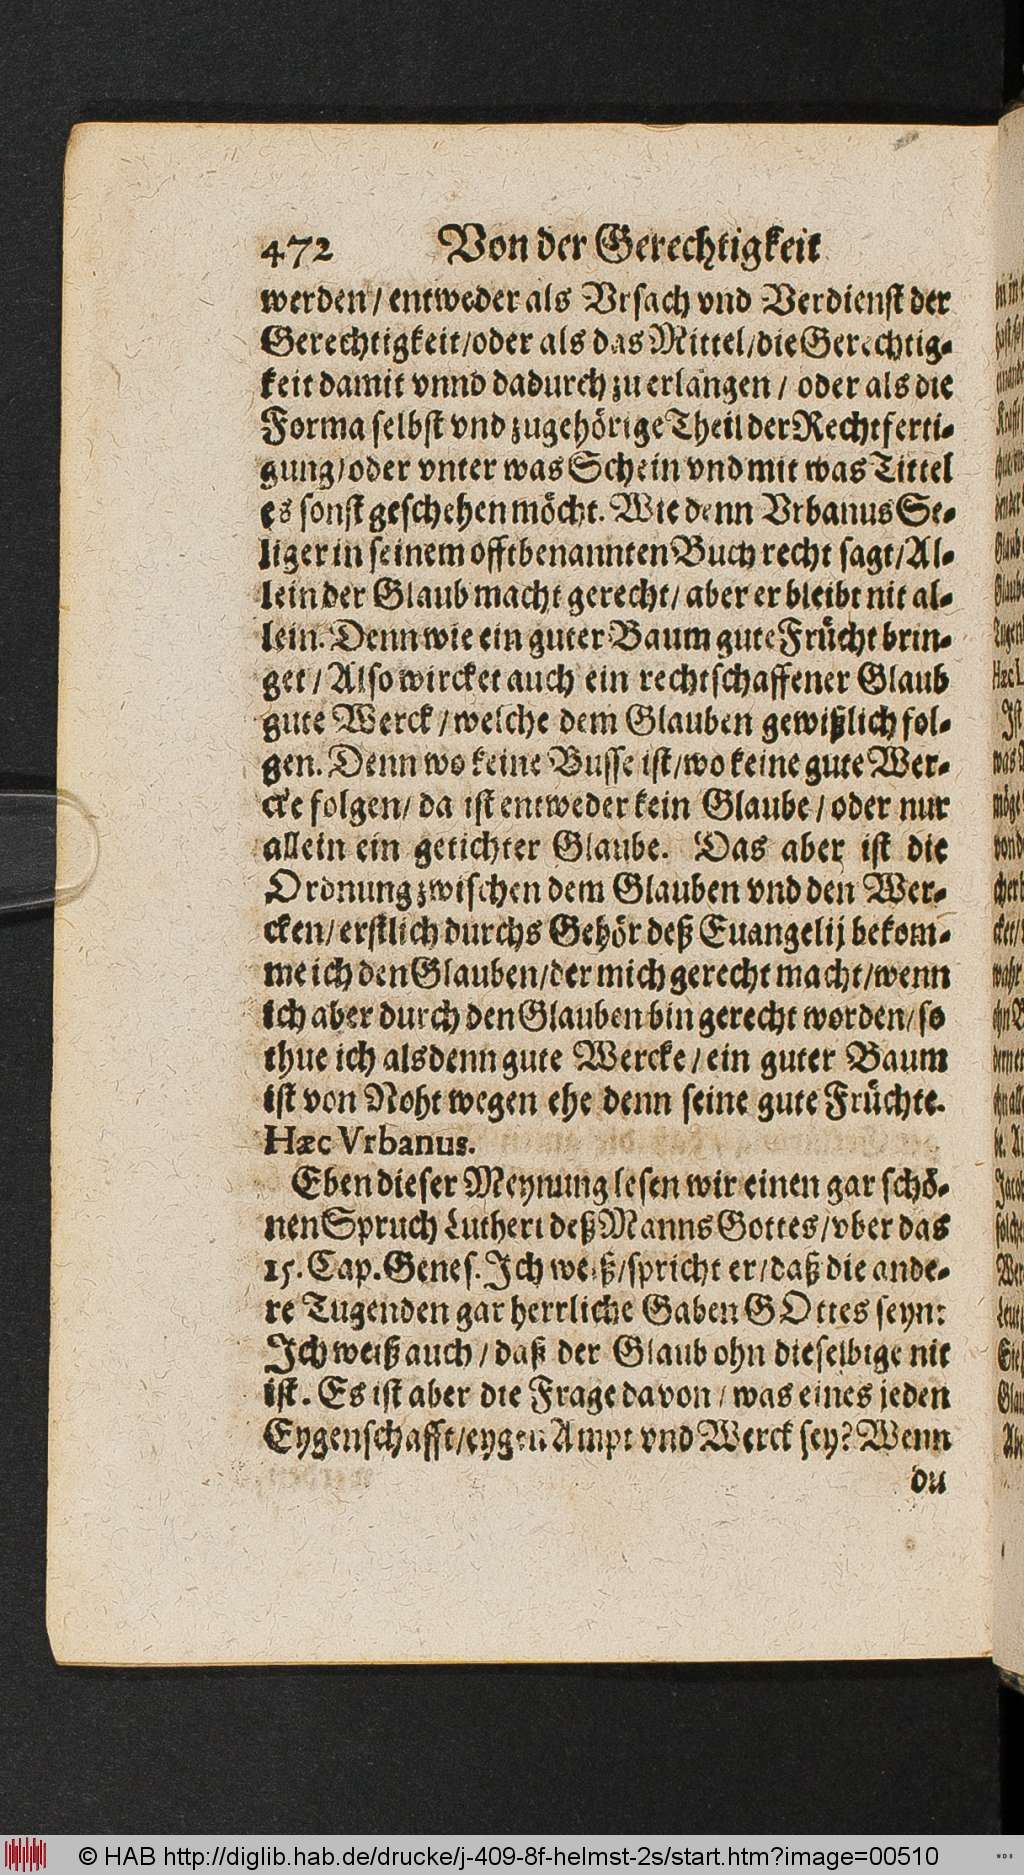 472 Von der Gerechtigkeit
werden / entweder als Vrsach vnd Verdienst der
Gerechtigkeit / oder als das Mittel / die Gerechtig-
keit damit vnnd dadurch zu erlangen / oder als die
Forma selbst vnd zugehörige Theil der Rechtferti-
gung / oder vnter was Schein vnd mit was Tittel
es sonst geschehen möcht. Wie denn Vrbanus Se-
liger in seinem offtbenannten Buch recht sagt / Al-
lein der Glaub macht gerecht / aber er bleibt nit al-
lein. Denn wie ein guter Baum gute Frücht brin-
get / Also wircket auch ein rechtschaffener Glaub
gute Werck / welche dem Glauben gewißlich fol-
gen. Denn wo keine Busse ist / wo keine gute Wer-
cke folgen / da ist entweder kein Glaube / oder nur
allein ein getichter Glaube. Das aber ist die
Ordnung zwischen dem Glauben vnd den Wer-
cken / erstlich durchs Gehör deß Euangelij bekom-
me ich den Glauben / der mich gerecht macht / wenn
ich aber durch den Glauben bin gerecht worden / so
thue ich alsdenn gute Wercke / ein guter Baum
ist von Noht wegen ehe denn seine gute Früchte.
Hæc Vrbanus.
Eben dieser Meynung lesen wir einen gar schö-
nen Spruch Lutheri deß Manns Gottes / vber das
15. Cap. Genes. Ich weiß / spricht er / daß die ande-
re Tugenden gar herrliche Gaben GOttes seyn:
Ich weiß auch / daß der Glaub ohn dieselbige nit
ist. Es ist aber die Frage davon / was eines jeden
Eygenschafft / eygen Ampt vnd Werck sey? Wenn
du
© HAB http://diglib.hab.de/drucke/j-409-8f-helmst-2s/start.htm?image=00510